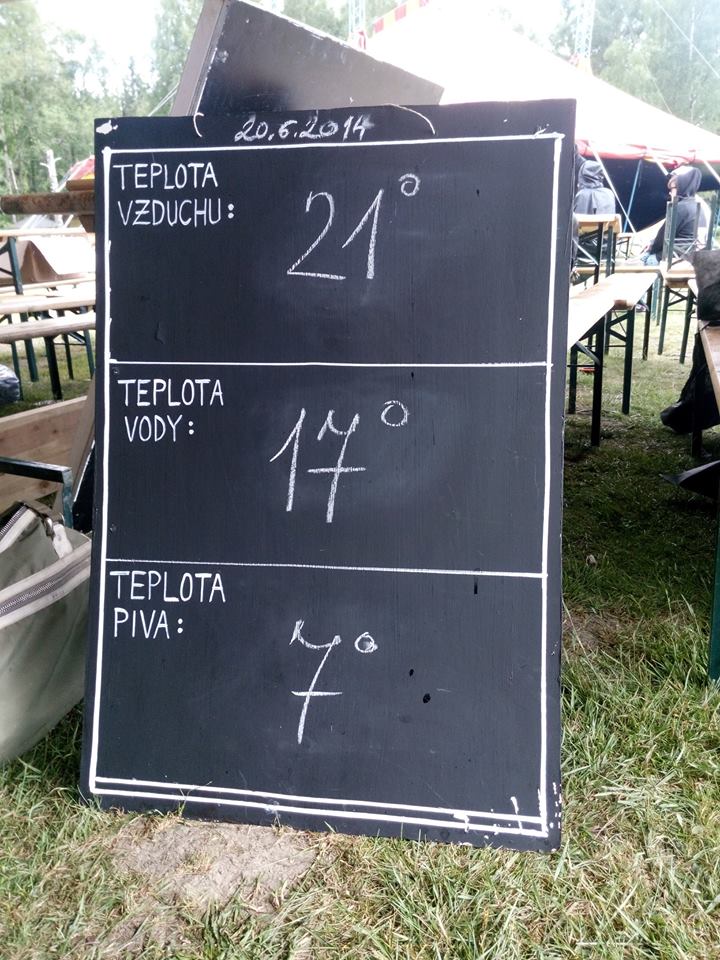 20.6.2014
TEPLOTA
VZDUCHU:
21°
TEPLOTA
VODY:
17°
TEPLOTA
PIVA:
7°